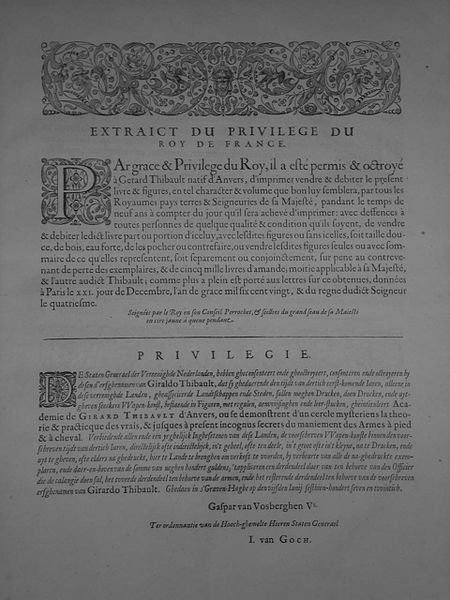 EXTRAICT DU PRIVILEGE DU
ROY DE FRANCE.
PAr grace & Privilege du Roy, il a esté permis & octroyé
à Gerard Thibault natif d'Anvers, d'imprimer vendre & debiter le present
livre & figures, en tel character & volume que bon luy semblera, par tous les
Royaumes pays terres & Seigneuries de sa Majesté, pandant le temps de
neuf ans à compter du jour qu'il sera achevé d'imprimer: avec deffences à
toutes personnes de quelque qualité & condition qu'ils soyent, de vendre
& debiter ledict livre part ou portion d'iceluy, avec lesdites figures ou sans icelles, soit taille dou-
ce, de bois, eau forte, de les pocher ou contrefaire, ou vendre lesdites figures seules ou avec som-
maire de ce qu'elles representent, soit separement ou conjoinctement, sur pene au contreve-
nant de perte des exemplaires, & de cincq mille livres d'amande, moitie applicable à sa Majesté,
& l'autre audict Thibault; comme plus a plein est porté aux lettres sur ce obtenues, données
à Paris le XXI. jour de Decembre, l'an de grace mil six cent vingt, & du regne dudict Seigneur
le quatriesme.
Seignées par le Roy en son Conseil Perrochet, & seellées du grand seau de sa Maiesté
en cire jaune à queue pendant.
PRIVILEGIE.
DE Staten Generael der Vereenighde Nederlanden, hebben gheconsenteert ende gheoctroyeert, consenteren ende octroyeren by
desen d'erfghenamen van Giraldo Thibault, dat sy gheduerende den tijdt van dertich eerst-komende Iaren, alleene in
dese vereenighde Landen, gheassocieerde Landtschappen ende Steden, sullen moghen Drucken, doen Drucken, ende uyt-
gheven seeckere VVapen-konst, bestaende in Figuren, met regulen, aenwijsinghen ende leer-stucken, gheintituleert Aca-
demie de GIRARD THIBAVLT d'Anvers, ou se demonstrent d'un cercle mysterieus la theo-
rie & practicque des vrais, & jusques à present incognus secrets du maniement des Armes à pied
& à cheval. Verbiedende allen ende een yeghelijck Inghesetenen van dese Landen, de voorschreven VVapen-konste binnen den voor-
schreven tijdt van dertich Iaren, directelijck ofte indirectelijck, in't geheel, ofte ten deele, in't groot ofte in't kleyne, na te Drucken, ende
uyt te gheven, ofte elders na ghedruckt, hier te Lande te brenghen om verkoft te worden, by verbeurte van alle de na-ghedruckte exem-
plaren, ende daer-en-boven van de somme van
hondert guldens, t'appliceren een derdendeel daer van ten behoeve van den Officier
die de calangie doen sal, het tweede derdendeel ten behoeve van de armen, ende het resterende derdendeel ten behoeve van de voorschreven
erfghenamen van Girardo Thibault. Ghedaen in s'Graven-Haghe op den vijfden Iunij sesthien-hondert seven en twintich.
Gaspar van Vosberghen Vt.
Ter ordonnantie van de Hooch-ghemelte Heeren Staten Generael
I. van GOCH.